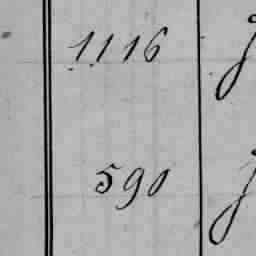 1116
590